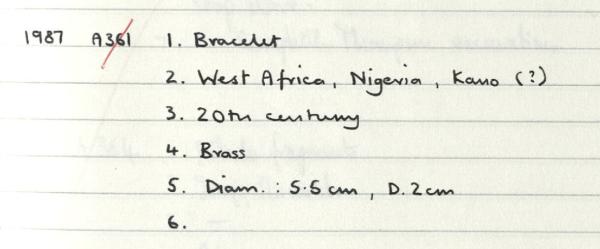 1987 A361 1. Bracelet
2. West Africa, Nigeria, Kano (?)
3. 20th century
4. Brass
5. Diam.: 5.5cm, D. 2cm
6.